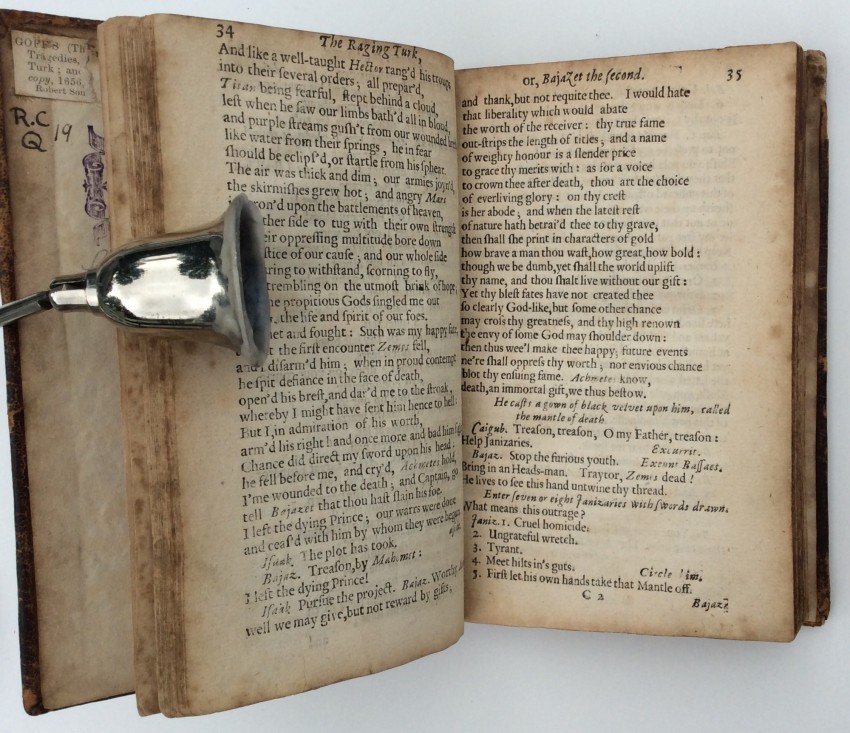 GOFFE'S (Th
Tragedies,
Turk; an
copy, 1656,
Robert Son
R.C
Q 19
34
The Raging Turk,
And like a well-taught Hector rang'd his troups
into their ſeverall orders; all prepar'd,
Titan being fearful, ſtept behind a cloud,
leſt when he ſaw our limbs bath'd all in blood,
and purple ſtreams guſh't from our wounded
like water from their ſprings, he in fear
ſhould be eclipſ'd, or ſtartle from his ſphear.
The air was thick and dim; our armies joyn'd,
the skirmiſhes grew hot; and angry Mars
upon the battlements of heaven,
ther ſide to tug with their own ſtrength
eir oppreſſing multitude bore down
ſtice of our cauſe; and our whole ſide
ring to withſtand, ſcorning to fly,
trembling on the utmoſt brink of hope,
he propitious Gods ſingled me out
the life and ſpirit of our foes.
et and fought: Such was my happy fate,
t the firſt encounter Zemes fell,
and I diſarm'd him; when in proud contempt
he ſpit defiance in the face of death,
open'd his breſt, and dar'd me to the ſtroak,
whereby I might have ſent him hence to hell:
But I, in admiration of his worth,
arm'd his right hand once more and bad him
Chance did direct my ſword upon his head:
he fell before me, and cry'd, Achmetes hold,
I'me wounded to the death; and Captain, go
tell Bajazet that thou haſt ſlain his foe.
I left the dying Prince; our warrs were done
and ceaſ'd with him by whom they were begun
Iſaak. The plot has took.
Bajaz. Treaſon, by Mahomet:
I left the dying Prince!
Iſaak Purſue the project. Bajaz. Worthy
well we may give, but not reward by gifts,
or, Bajazet the ſecond.
35
and thank, but not requite thee. I would hate
that liberality which would abate
the worth of the receiver: thy true fame
out-ſtrips the length of titles; and a name
of weighty honour is a ſlender price
to grace thy merits with: as for a voice
to crown thee after death, thou art the choice
of everliving glory: on thy creſt
is her abode; and when the lateſt reſt
of nature hath betrai'd thee to thy grave,
then ſhall ſhe print in characters of gold
how brave a man thou waſt, how great, how bold:
though we be dumb, yet ſhall the world uplift
thy name, and thou ſhalt live without our gift:
Yet thy bleſt fates have not created thee
ſo clearly God-like, but ſome other chance
may croſs thy greatneſs, and thy high renown
the envy of ſome God may ſhoulder down:
then thus wee'l make thee happy; future events
ne're ſhall oppreſs thy worth; nor envious chance
blot thy enſuing fame. Achmetes know,
death, an immortal gift, we thus beſtow.
He caſts a gown of black velvet upon him, called
the mantle of death.
Caigub. Treaſon, treaſon, O my Father, treaſon:
Help Janizaries. Excurrit.
Bajaz. Stop the furious youth. Exeunt Baſſaes.
Bring in an Heads-man. Traytor, Zemes dead!
He lives to ſee this hand untwine thy thread.
Enter ſeven or eight Janizaries with ſwords drawn.
What means this outrage?
Janiz. 1. Cruel homicide.
2. Ungrateful wretch.
3. Tyrant.
4. Meet hilts in's guts. Circle him.
5. Firſt let his own hands take that Mantle off.
C 2
Bajaz.